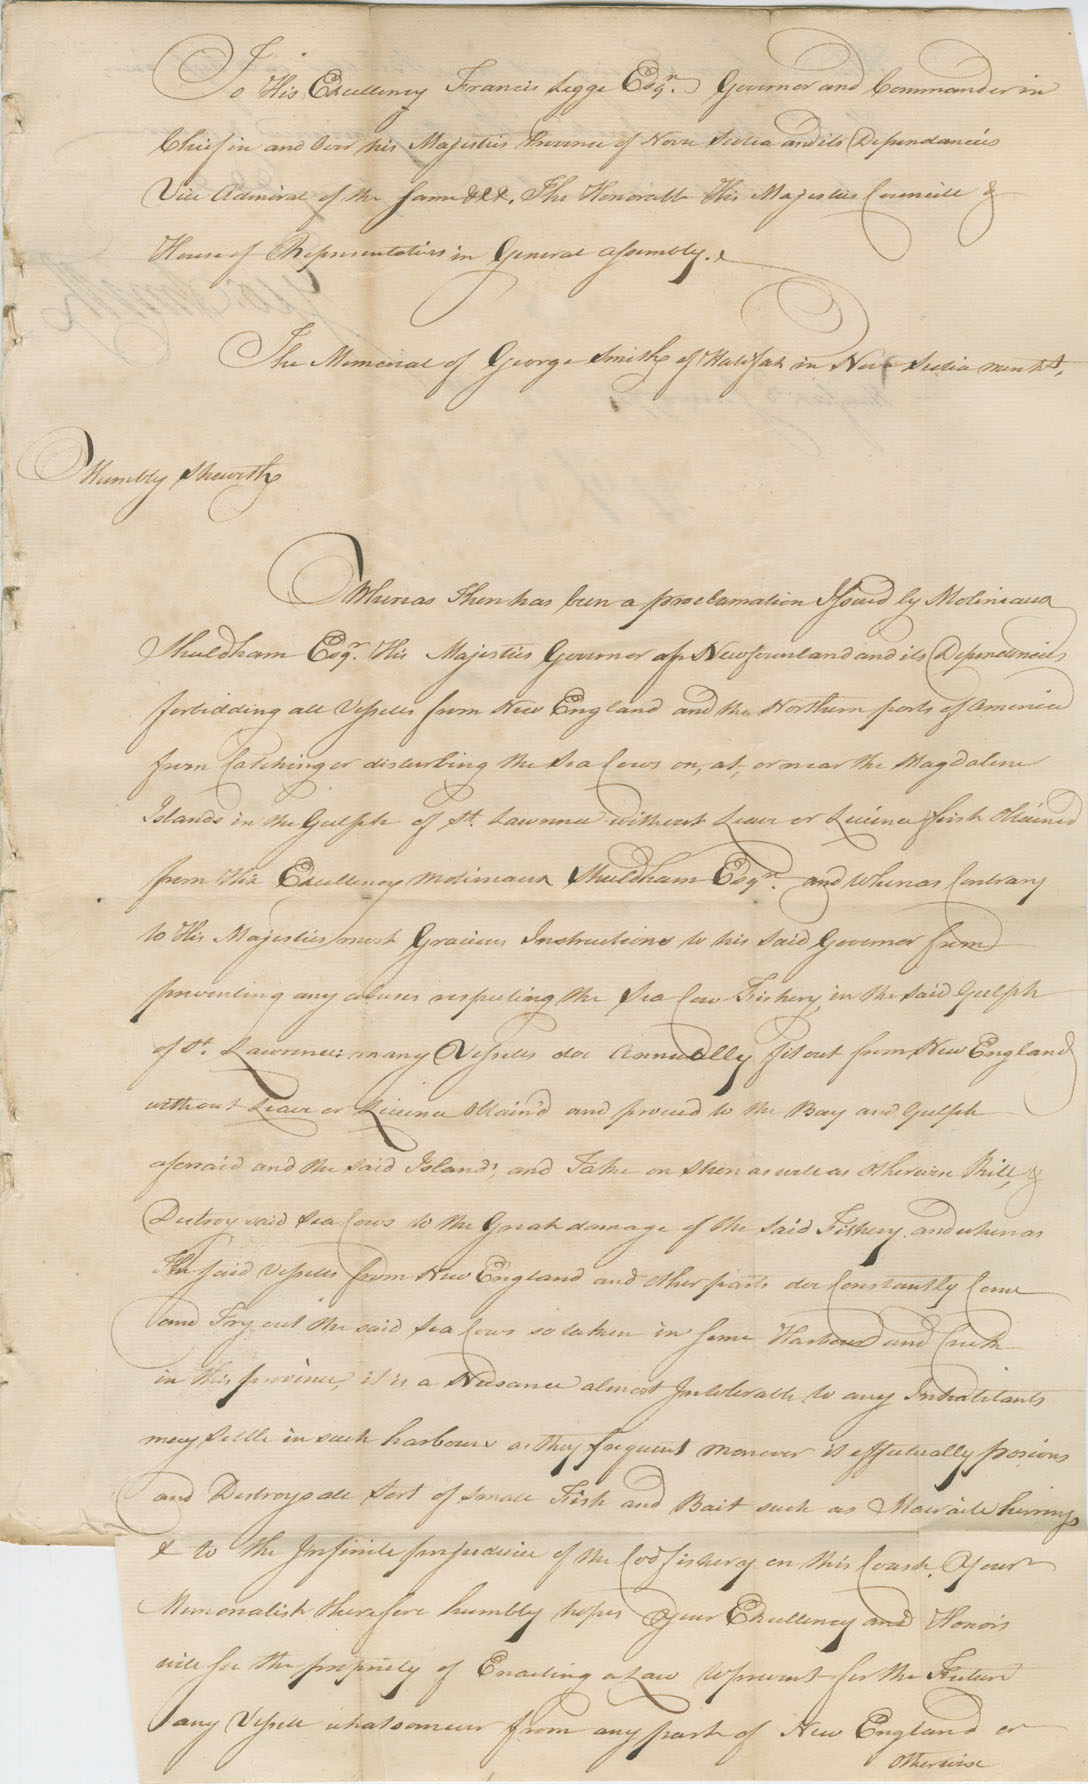 To His Excellency Francis Legge Esqr. Governor and Commander in
Chief in and Over his Majesties Province of Nova Scotia and its Dependancies
Vice Admiral of the same &c &c. The Honorable His Majesties Councill &
House of Representatives in General Assembly.
The Memorial of George Smith of Halifax in Nova Scotia
Humbly Sheweth
Whereas There has been a proclamation Issued by Molineaux
Shuldham Esqr. His Majesties Governor of Newfounland and its Dependencies
forbidding all Vessells from New England and the Northern ports of America
from Catching or disturbing the Sea Cows on, at, or near the Magdalene
Islands in the Gulph of St. Lawrence without Leave or Licence first Obtained
from His Excellency Molineaux Shuldham Esqr. and Whereas Contrary
to His Majesties most Gracious Instructions to his said Governor from
preventing any abuses respecting the Sea Cow Fishery in the said Gulph
of St. Lawrence: many Vessells doe Annually fit out from New England
without Leave or Licence Obtain'd and proceed to the Bay and Gulph
aforesaid and the said Islands, and Take on Shore as well as otherwise Kill, &
Destroy said Sea Cows to the Great damage of the said Fishery. and whereas
The said Vessells from New England and other parts doe Constantly Come
and Try out the said Sea Cows so taken in some Harbour and Creek
in this province, it is a Nusance almost Intolerable to any Inhabitants
may settle in such harbours as they frequent moreover it effectually posions
and Destroys all Sort of small Fish and Bait such as Macraile herrings
& to the Infinite prejudice of the Codfishery on this Coast. Your
Memorialist therefore humbly hopes Your Excellency and Honors
will see the propriety of Enacting a Law to prevent for the Future
any Vessell whatsomever from any part of New England or
otherwise